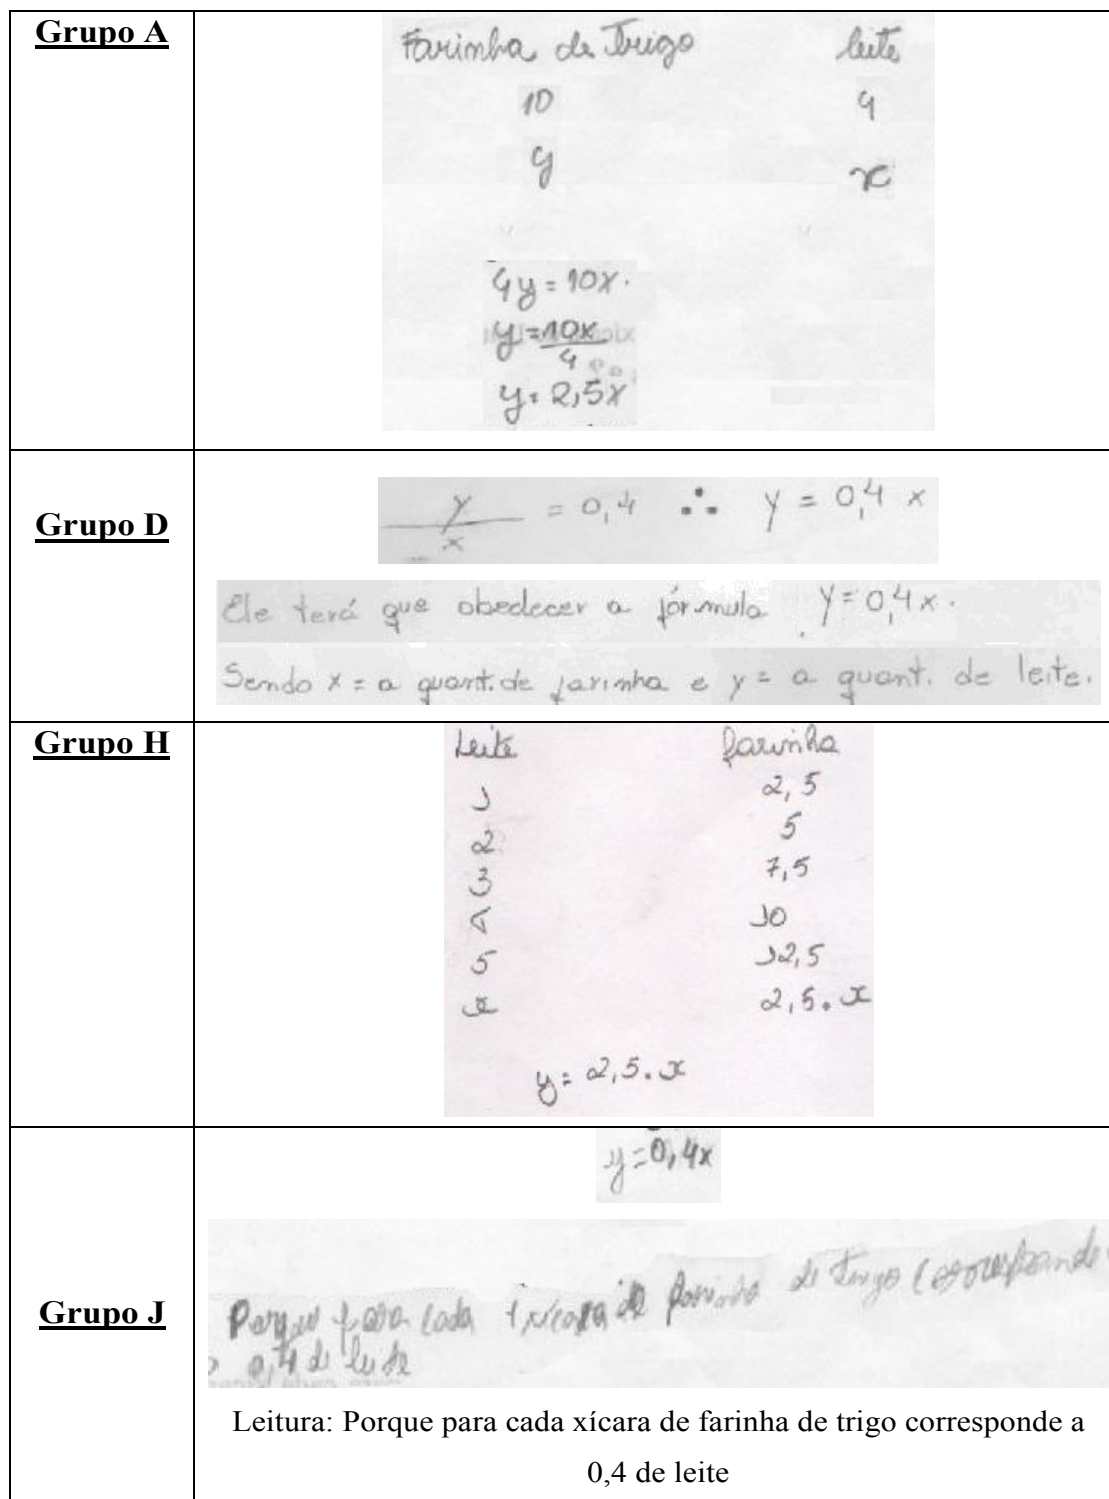 Grupo A
Farinha de Trigo leite
10 4
y x
4y = 10x.
y = 10x
4
y = 2,5x
Grupo D
y = 0,4 ∴ y = 0,4 x
x
Ele terá que obedecer a fórmula y = 0,4 x.
Sendo x = a quant. de farinha e y = a quant. de leite.
Grupo H
Leite farinha
1 2,5
2 5
3 7,5
4 10
5 12,5
x 2,5 . x
y = 2,5 . x
Grupo J
y = 0,4x
Porque para cada 1 xícara de farinha de trigo corresponde
0,4 de leite
Leitura: Porque para cada xícara de farinha de trigo corresponde a
0,4 de leite